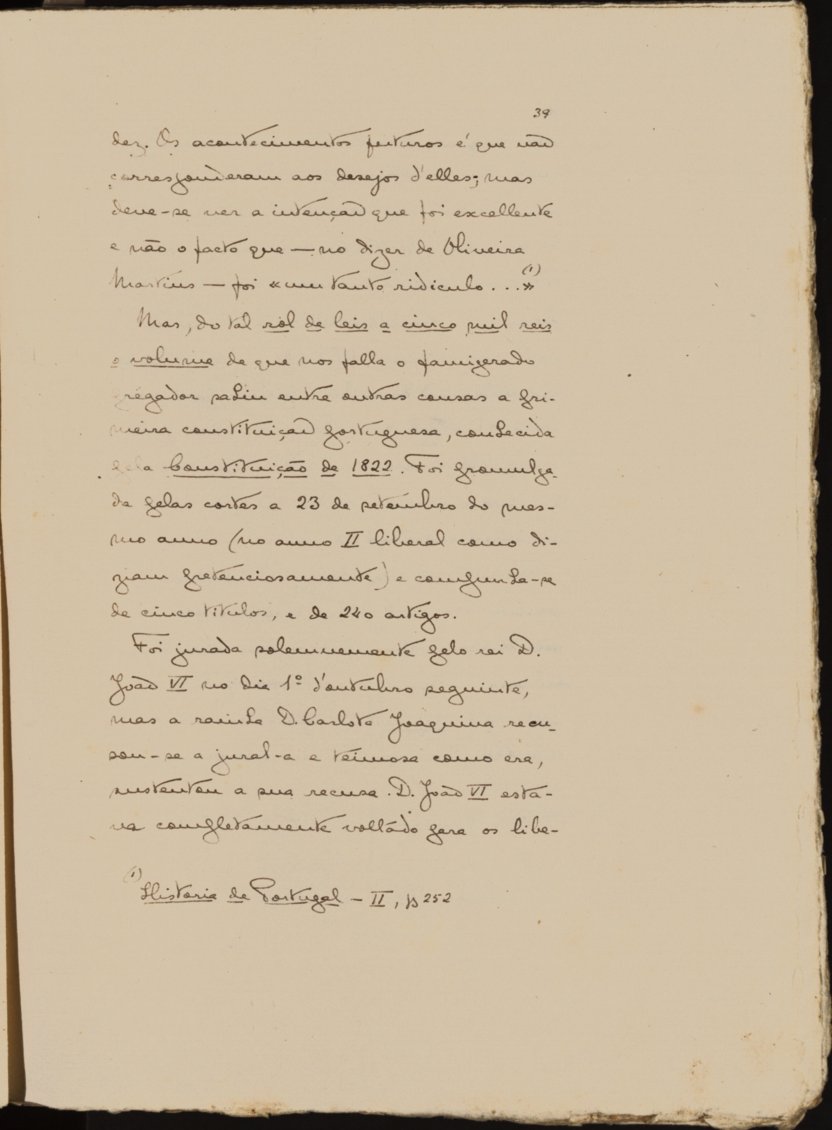 39
dez. Os acontecimentos futuros é que não
corresponderam aos desejos d'elles; mas
deve-se ver a intenção que foi excellente
e não o facto que — no dizer de Oliveira
Martins — foi «um tanto ridiculo...» (1)
Mas, do tal rol de leis a cinco mil reis
o volume de que nos falla o famigerado
prégador sahiu entre outras cousas a pri-
meira constituição portuguesa, conhecida
pela Constituição de 1822. Foi promulga-
da pelas cortes a 23 de setembro do mes-
mo anno (no anno II liberal como di-
ziam pretenciosamente) e compunha-se
de cinco titulos, e de 240 artigos.
Foi jurada solemnemente pelo rei D.
João VI no dia 1º d'outubro seguinte,
mas a rainha D. Carlota Joaquina recu-
sou-se a jural-a e teimosa como era,
sustentou a sua recusa. D. João VI esta-
va completamente voltádo para os libe-
(1) Historia de Portugal — II, p 252